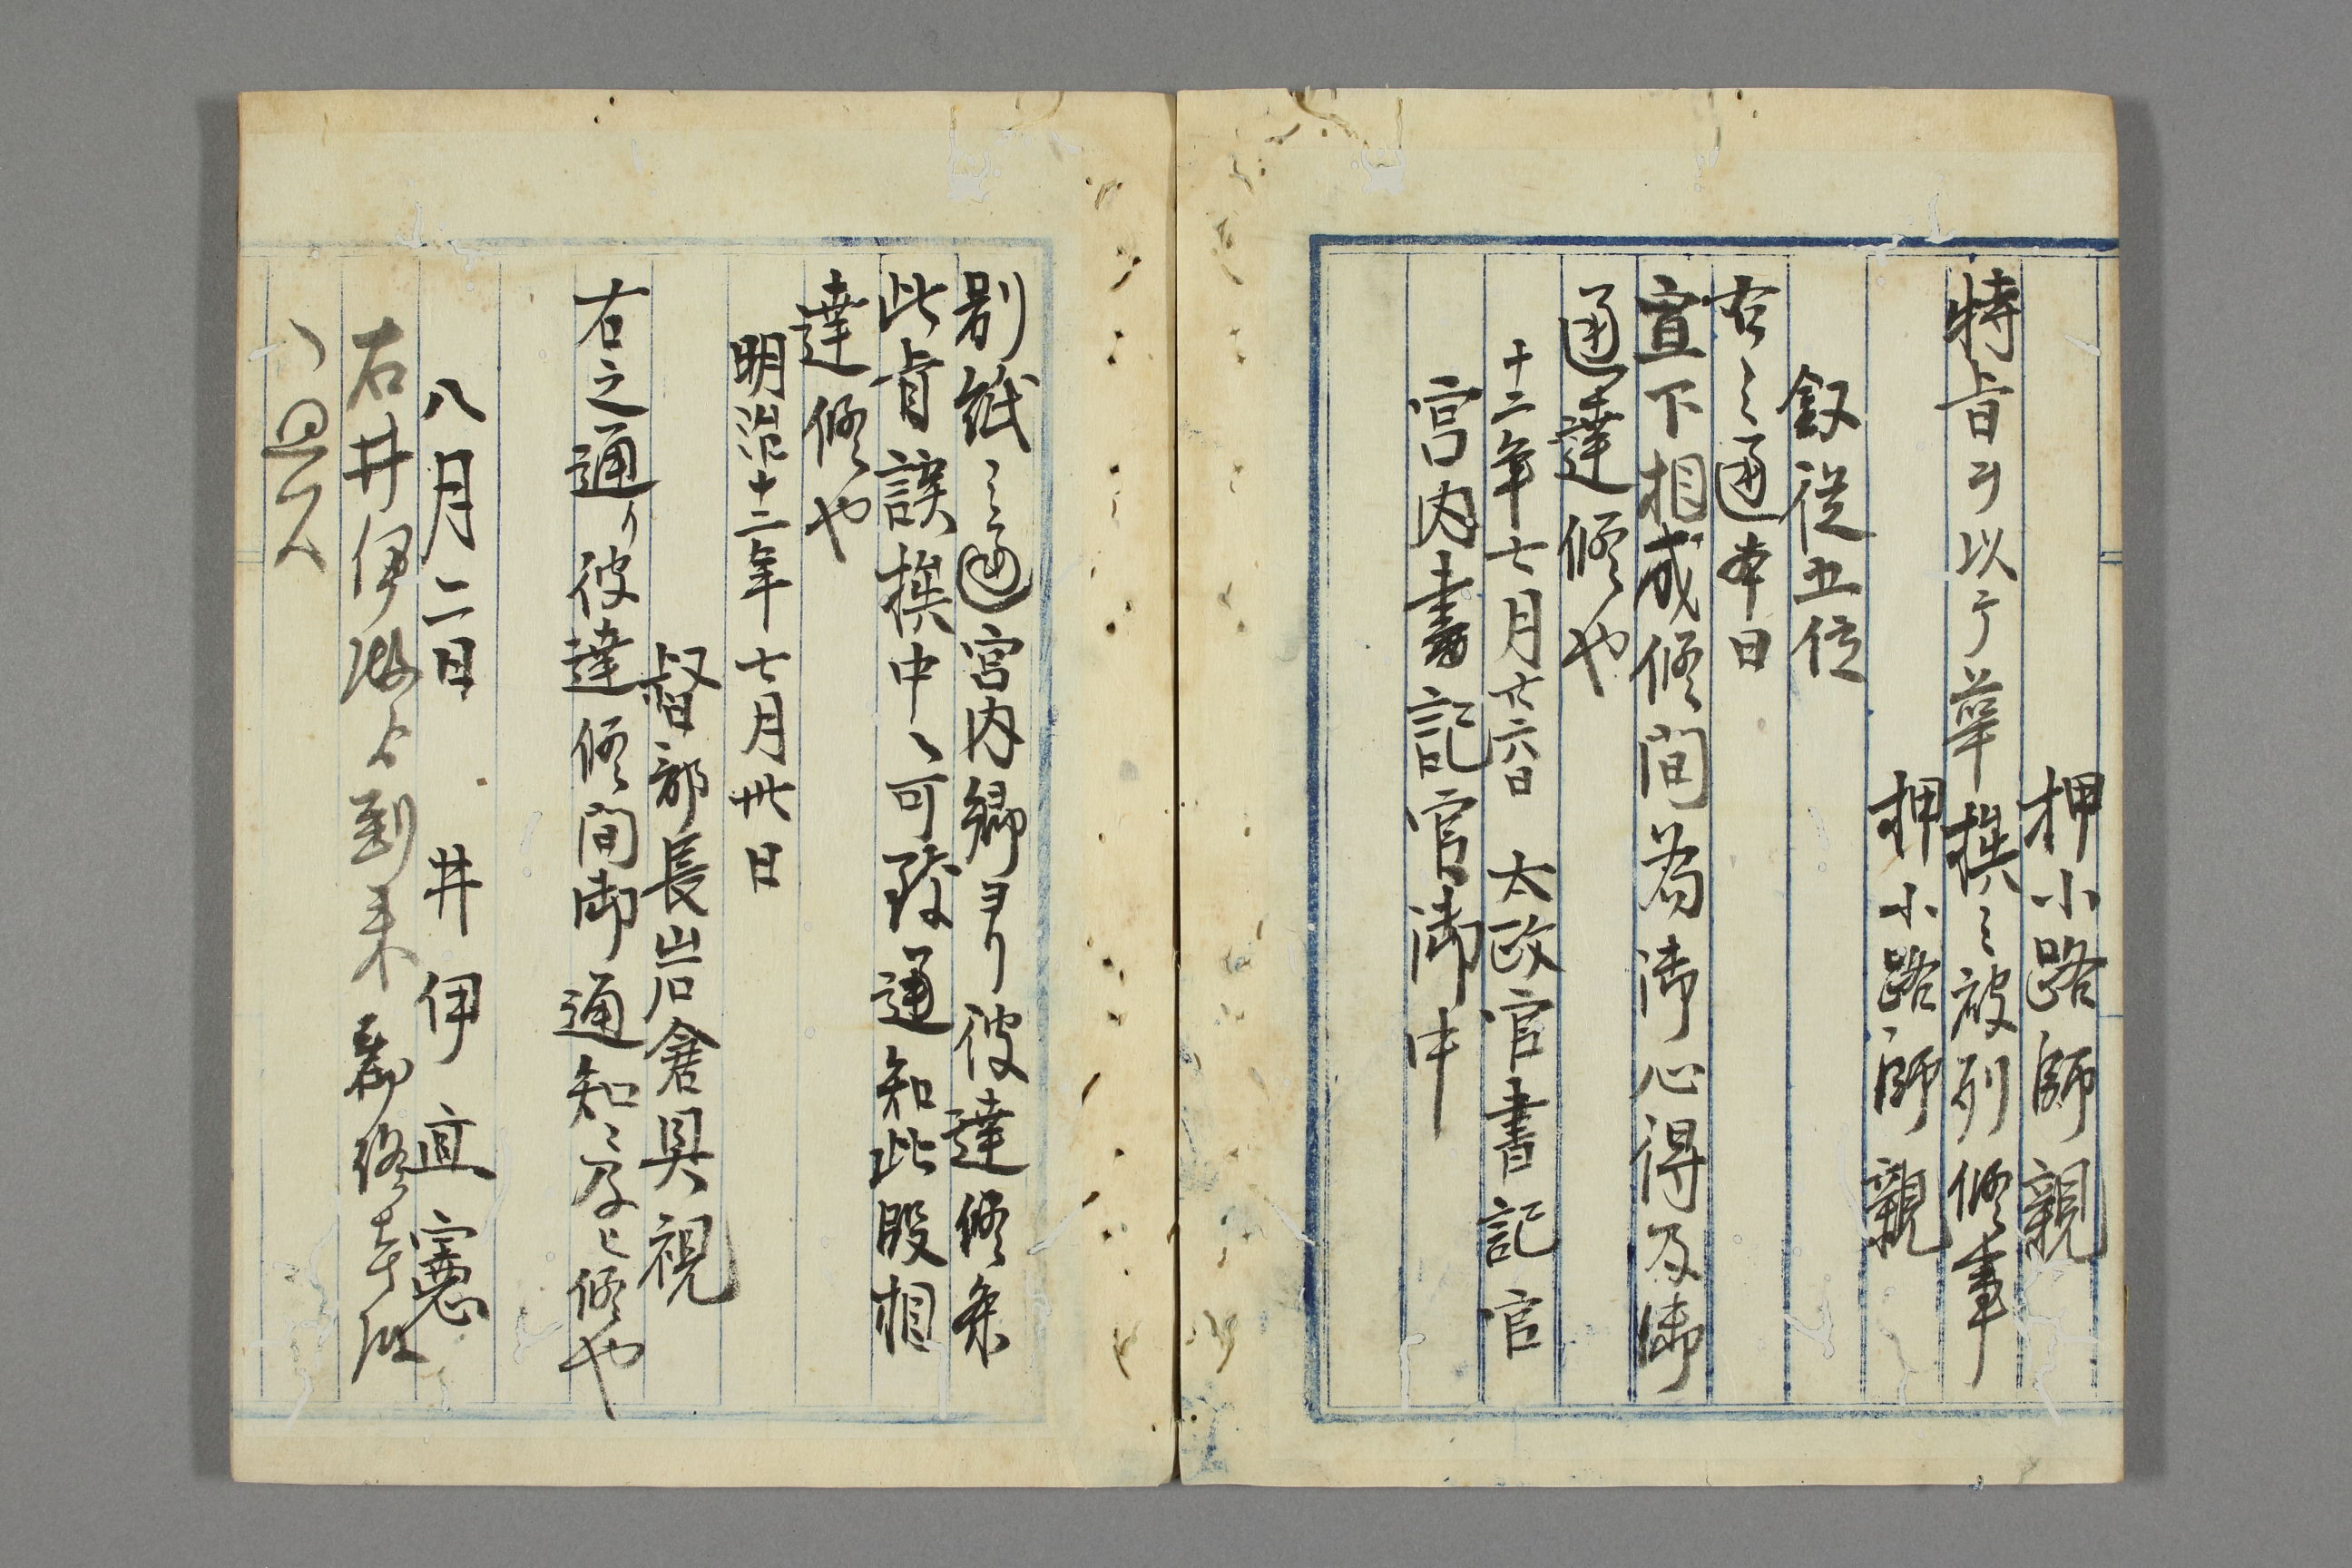 押小路師親
特旨ヲ以テ華族ニ被列候事
押小路師親
叙従五位
右之通本日
宣下相成候間為御心得及御
通達候也
十二年七月廿六日 太政官書記官
宮内書記官御中
別紙之通宮内卿ヨリ被達候条
此旨該族中ヘ可致通知此段相
達候也
明治十二年七月卅日
督部長岩倉具視
右之通リ被達候間御通知ニ及ヒ候也
八月二日 井伊直憲
右井伊殿ゟ到来